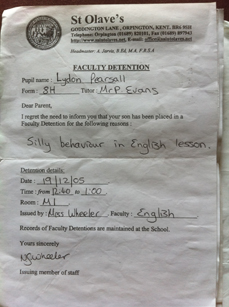 St Olave's
GODDINGTON LANE, ORPINGTON, KENT. BR6 9SH
Telephone: Orpington (01689) 820101, Fax (01689) 897943
Headmaster: A. Jarvis, B Ed, M.A. F.R.S.A
FACULTY DETENTION
Pupil name : Lydon Pearsall
Form : 8H Tutor : Mr P. Evans
Dear Parent,
I regret the need to inform you that your son has been placed in a
Faculty Detention for the following reasons :
Silly behaviour in English lesson.
Detention details:
Date : 19/12/05
Time : from 12:40 to 1:00
Room : M1
Issued by : Miss Wheeler. Faculty : English
Records of Faculty Detentions are maintained at the School.
Yours sincerely
Issuing member of staff